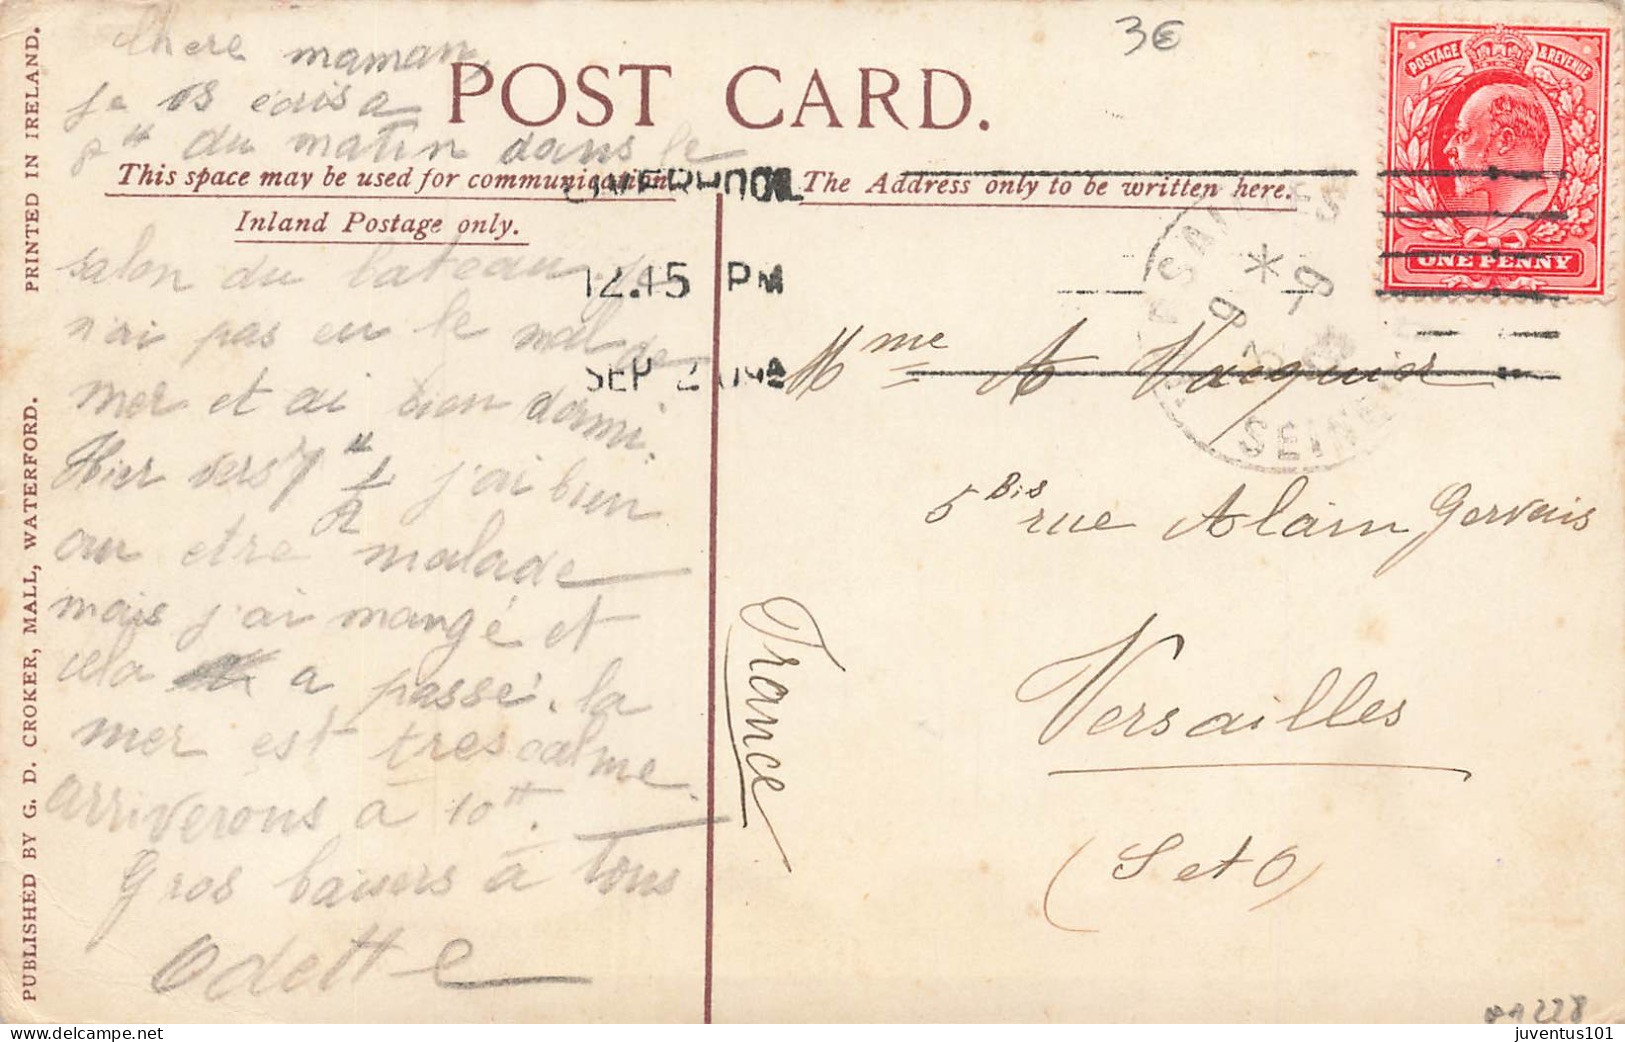 3€
POST CARD.
This space may be used for communication
Inland Postage only.
The Address only to be written here.
POSTAGE & REVENUE
ONE PENNY
LIVERPOOL
12.15 PM
SEP 2 09
VERSAILLES
SEINE
PRINTED IN IRELAND.
PUBLISHED BY G. D. CROKER, MALL, WATERFORD.
Chere maman,
je vs ecris a
du matin dans le
salon du bateau je
n'ai pas eu le mal de
mer et ai bien dormi.
Hier vers 7 H 1/2 j'ai bien
cru etre malade
mais j'ai mangé et
cela a passé. la
mer est tres calme.
arriverons à 10H.
Gros baisers à tous
Odette
Mme A Vacquier
5 Bis rue Alain Gervais
Versailles
(S et O)
France
1228
juventus101